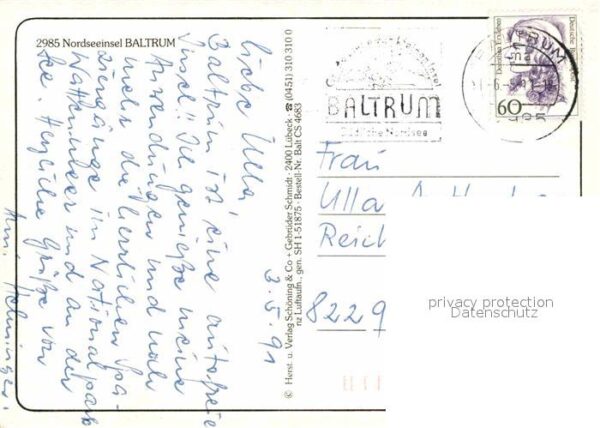 2985 Nordseeinsel BALTRUM
3.5.91
Liebe Ulla
Baltrum ist eine autofreie
Insel! Ich genieße meine
Anwendungen und nach
mittags die herrlichen Spa-
ziergänge im Nationalpark
Wattenmeer und an der
See. Herzliche Grüße von
© Herst. u. Verlag Schöning & Co + Gebrüder Schmidt · 2400 Lübeck · ☎ (0451) 310 310 0
nz Luftaufn., gen. SH 1-51875 · Bestell-Nr. Balt CS 4683
BALTRUM
Nordsee
Dorothea Erxleben
Deutsche Bundespost
60
Frau
Ulla
Reich
8229
privacy protection
Datenschutz